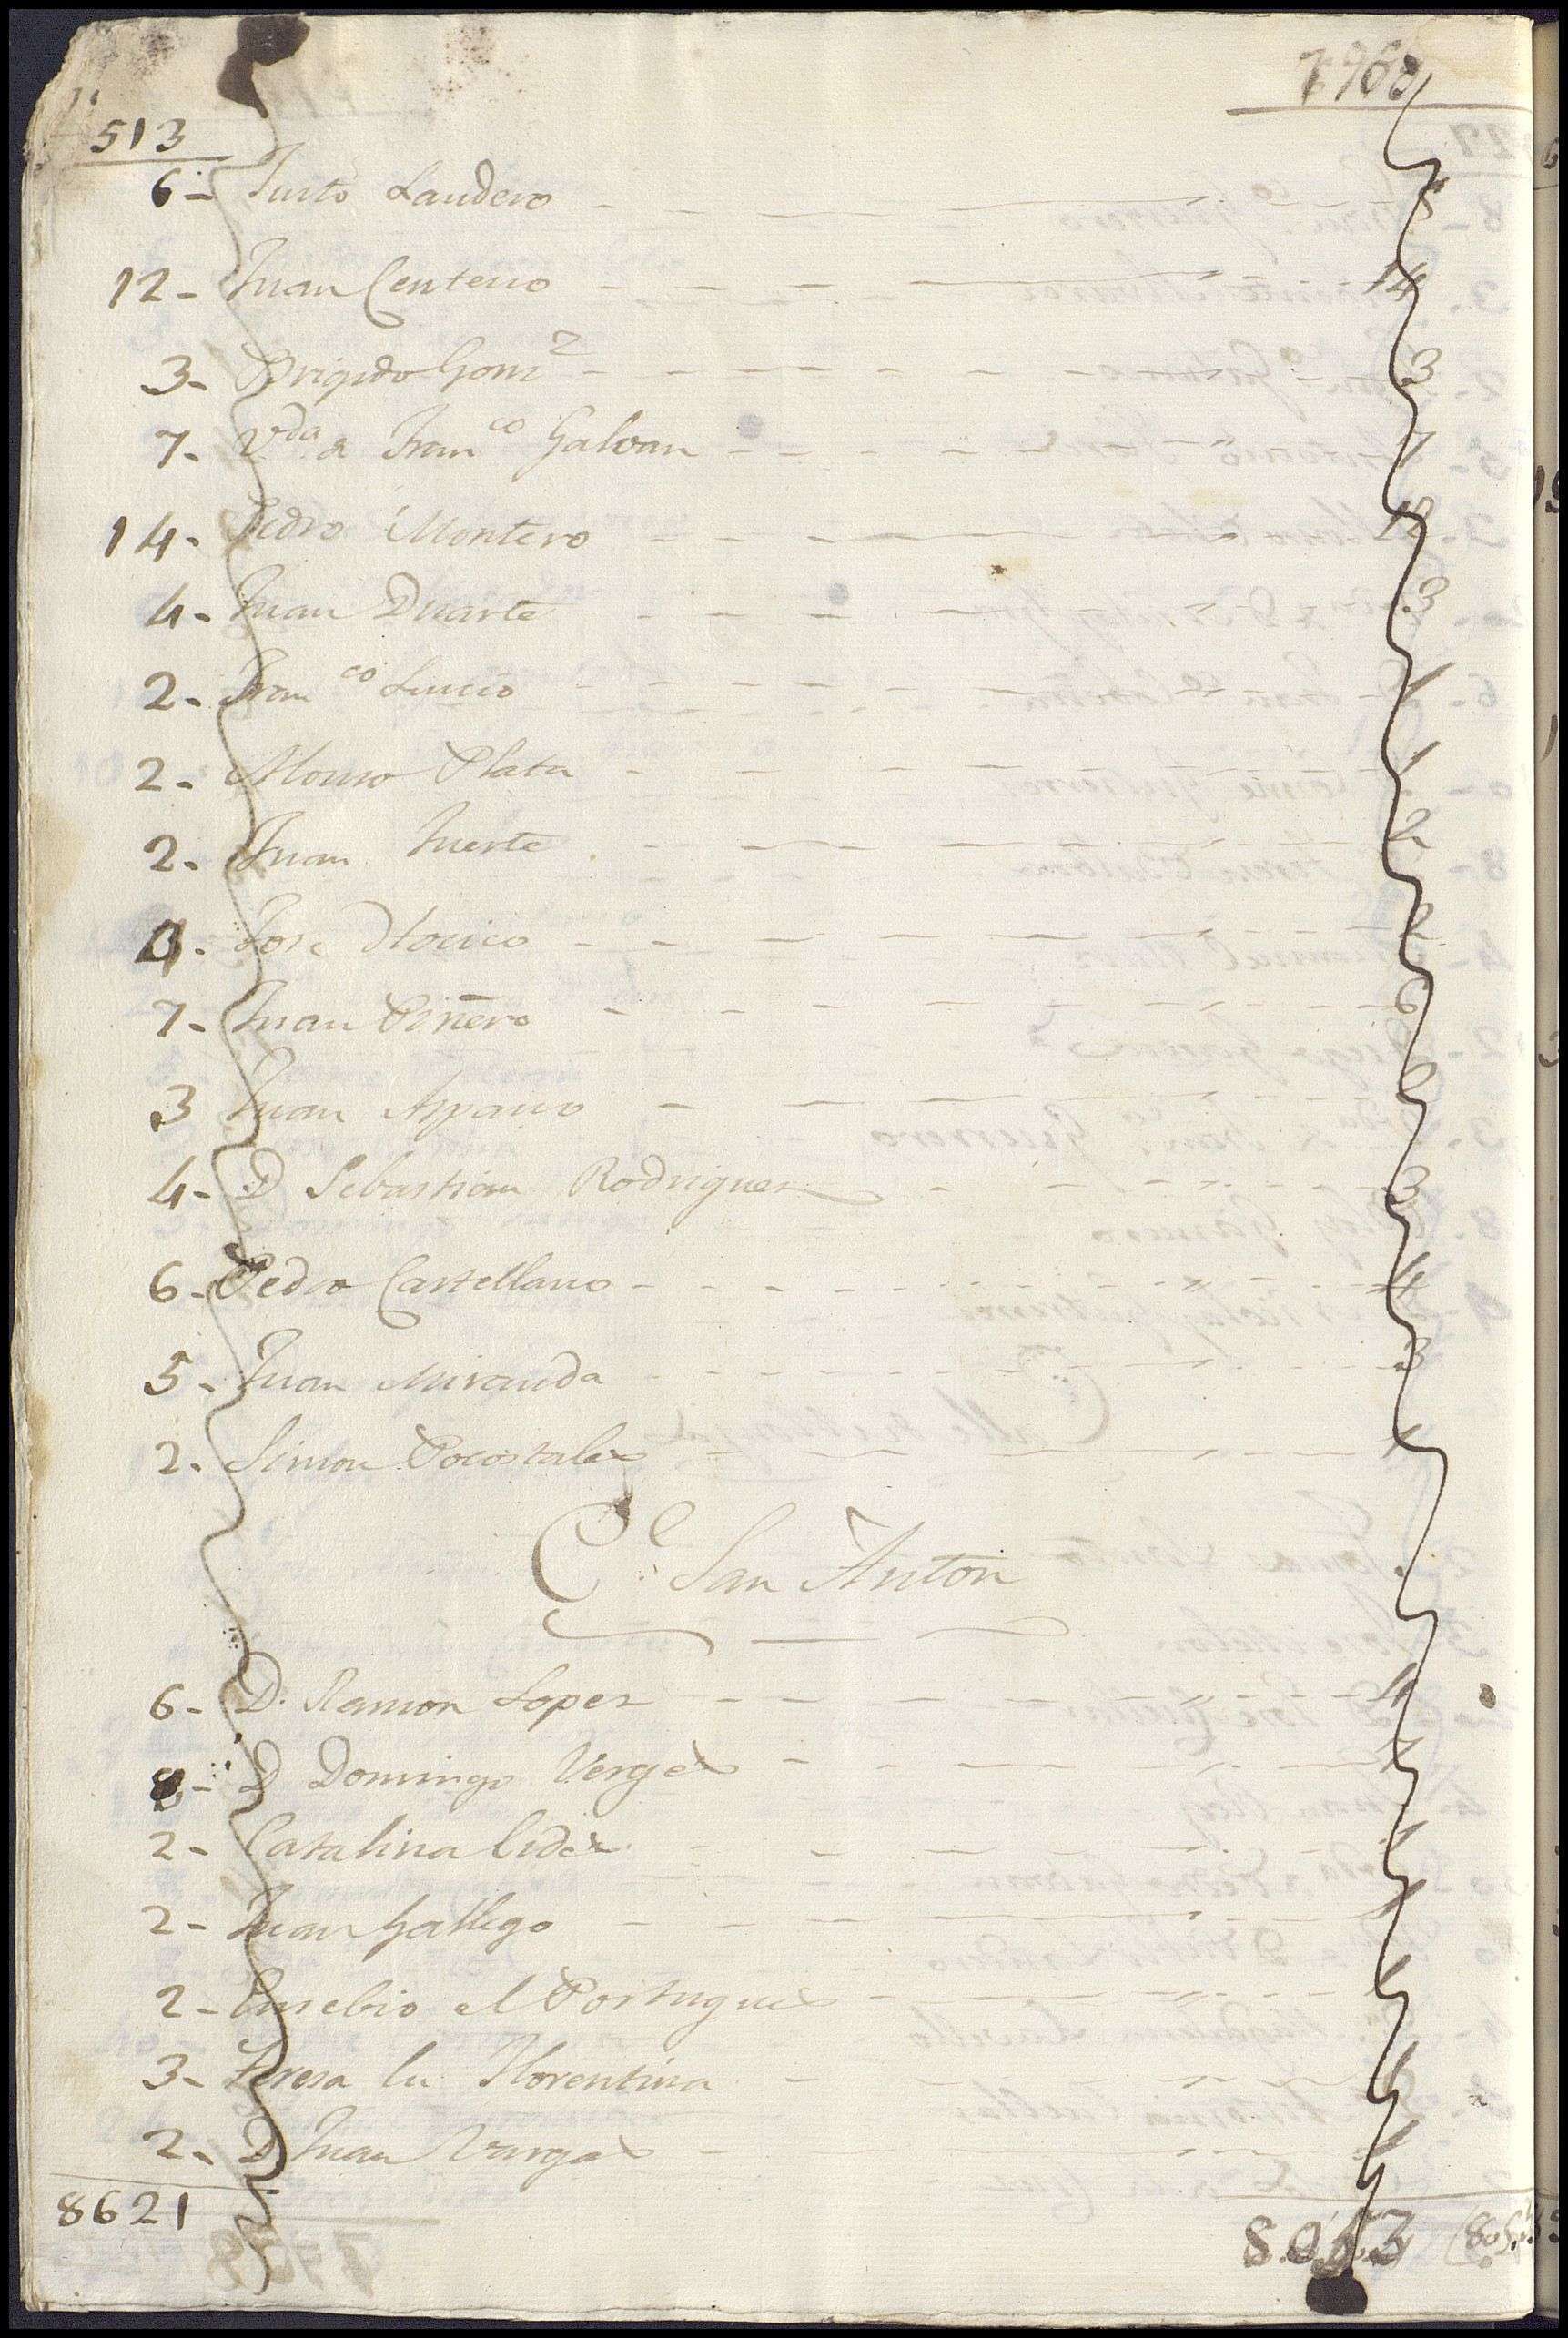 7960
513
6- Justo Landero 5
12- Juan Centeno 14
3- Brigido Gonz 3
7- Vda. de Franco Galvan 7
14- Pedro Montero 12
4- Juan Duarte 3
2- Franco Lucio 1
2- Alonso Plata 1
2- Juan Fuerte 2
Jose Hocico 2
7- Juan Piñero 6
3 Juan Appario 2
4- D Sebastian Rodriguez 3
6- Pedro Castellano 4
5- Juan Miranda 3
2- Simon Pocostales 1
Cl San Anton
6- D. Ramon Lopez 4
8- D Domingo Verges
2- Catalina Cides 1
2- Juan Gallego 1
2- Eusebio el Portugues 1
3- Teresa la Florentina 1
2- D Juan Vargas 1
8621